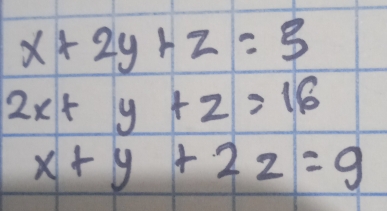 x + 2y + z = 3
2x + y + z = 16
x + y + 2z = 9